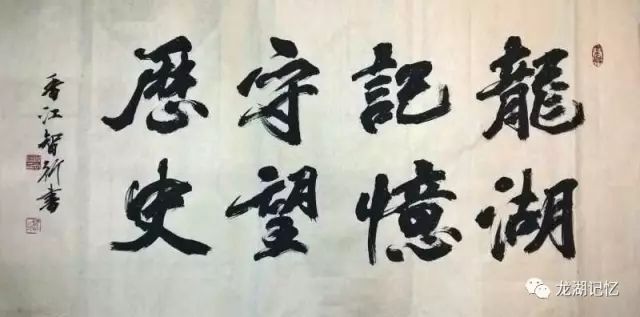 龍湖
記憶
守望
歷史
香江智衍書
龙湖记忆